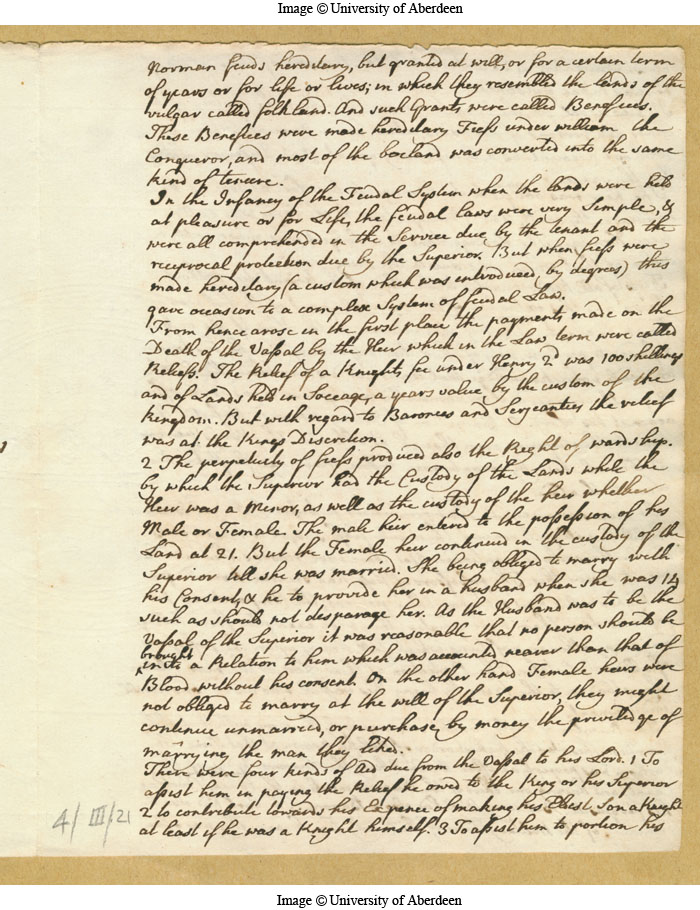 Image © University of Aberdeen
Norman feuds hereditary, but granted at will, or for a certain term
of years or for life or lives; in which they resembled the lands of the
vulgar called folkland. And such Grants were called Benefices.
These Benefices were made hereditary Fiefs under william the
Conqueror, and most of the bocland was converted into the same
kind of tenure.
In the Infancy of the Feudal System when the lands were held
at pleasure or for Life, the feudal laws were very Simple, &
were all comprehended in the Service due by the tenant and the
reciprocal protection due by the Superior. But when fiefs were
made hereditary (a custom which was introduced, by degrees) this
gave occasion to a complex System of feudal Law.
From hence arose in the first place the payments made on the
Death of the Vassal by the Heir which in the Law term were called
Reliefs. The Relief of a Knights fee under Henry 2d was 100 shillings
and of Lands held in Soccage, a years value by the custom of the
kingdom. But with regard to Baronies and Serjeanties the relief
was at the Kings Discretion.
2 The perpetuity of fiefs produced also the Right of wardship.
by which the Superior had the Custody of the Lands while the
Heir was a Minor, as well as the custody of the heir whether
Male or Female. The male heir entered to the possession of his
Land at 21. But the Female heir continued in the custody of the
Superior till she was married. She being obliged to marry with
his Consent, & he to provide her in a husband when she was 14
such as should not desparage her. As the Husband was to be the
Vassal of the Superior it was reasonable that no person should be
brought
into a Relation to him which was accounted nearer than that of
Blood without his consent. On the other hand Female heirs were
not obliged to marry at the will of the Superior, they might
continue unmarried, or purchase by money the priviledge of
marrying the man they liked.
There were four kinds of Aid due from the Vassal to his Lord. 1 To
assist him in paying the Relief he owed to the King or his Superior
2 to contribute towards his Expence of making his Eldest Son a Knight
at least if he was a Knight himself. 3 To assist him to portion his
4/III/21
Image © University of Aberdeen